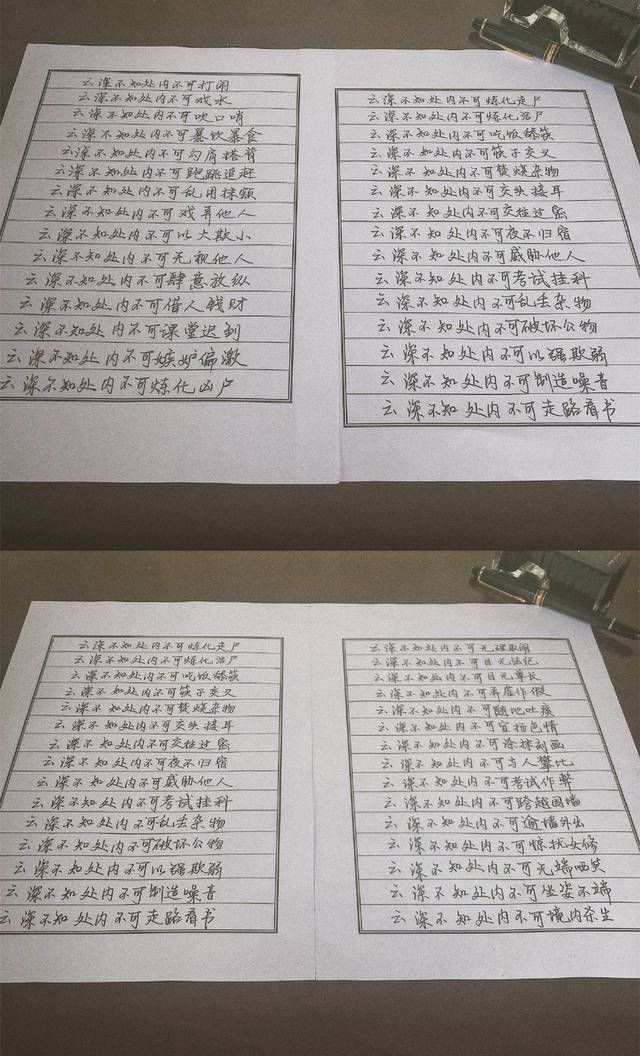 云深不知处内不可打闹
云深不知处内不可戏水
云深不知处内不可吹口哨
云深不知处内不可暴饮暴食
云深不知处内不可勾肩搭背
云深不知处内不可跑跳追赶
云深不知处内不可乱用抹额
云深不知处内不可戏弄他人
云深不知处内不可以大欺小
云深不知处内不可无视他人
云深不知处内不可肆意放纵
云深不知处内不可借人钱财
云深不知处内不可课堂迟到
云深不知处内不可嫉妒偏激
云深不知处内不可炼化凶尸
云深不知处内不可炼化走尸
云深不知处内不可炼化活尸
云深不知处内不可吃饭舔筷
云深不知处内不可筷子交叉
云深不知处内不可焚烧杂物
云深不知处内不可交头接耳
云深不知处内不可交往过密
云深不知处内不可夜不归宿
云深不知处内不可威胁他人
云深不知处内不可考试挂科
云深不知处内不可乱丢杂物
云深不知处内不可破坏公物
云深不知处内不可以强欺弱
云深不知处内不可制造噪音
云深不知处内不可走路看书
云深不知处内不可炼化走尸
云深不知处内不可炼化活尸
云深不知处内不可吃饭舔筷
云深不知处内不可筷子交叉
云深不知处内不可焚烧杂物
云深不知处内不可交头接耳
云深不知处内不可交往过密
云深不知处内不可夜不归宿
云深不知处内不可威胁他人
云深不知处内不可考试挂科
云深不知处内不可乱丢杂物
云深不知处内不可破坏公物
云深不知处内不可以强欺弱
云深不知处内不可制造噪音
云深不知处内不可走路看书
云深不知处内不可无理取闹
云深不知处内不可目无法纪
云深不知处内不可目无尊长
云深不知处内不可弄虚作假
云深不知处内不可随地吐痰
云深不知处内不可宣扬色情
云深不知处内不可涂抹刻画
云深不知处内不可与人攀比
云深不知处内不可考试作弊
云深不知处内不可跨越围墙
云深不知处内不可逾墙外出
云深不知处内不可惊扰女修
云深不知处内不可无端哂笑
云深不知处内不可坐姿不端
云深不知处内不可境内杀生